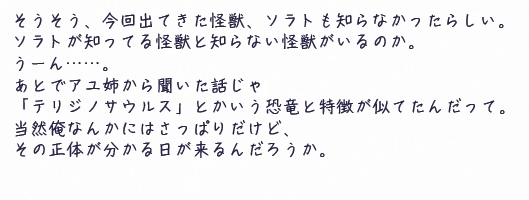 そうそう、今回出てきた怪獣、ソラトも知らなかったらしい。
ソラトが知ってる怪獣と知らない怪獣がいるのか。
うーん……。
あとでアユ姉から聞いた話じゃ
「テリジノサウルス」とかいう恐竜と特徴が似てたんだって。
当然俺なんかにはさっぱりだけど、
その正体が分かる日が来るんだろうか。